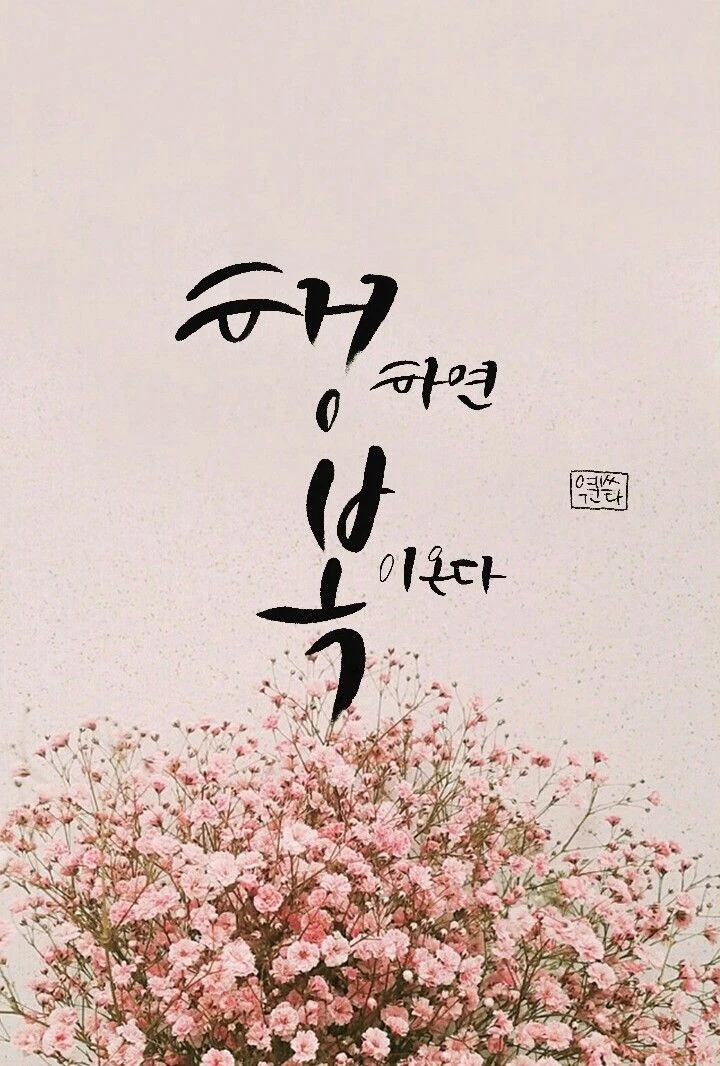 행하면
복이온다
연쓰다